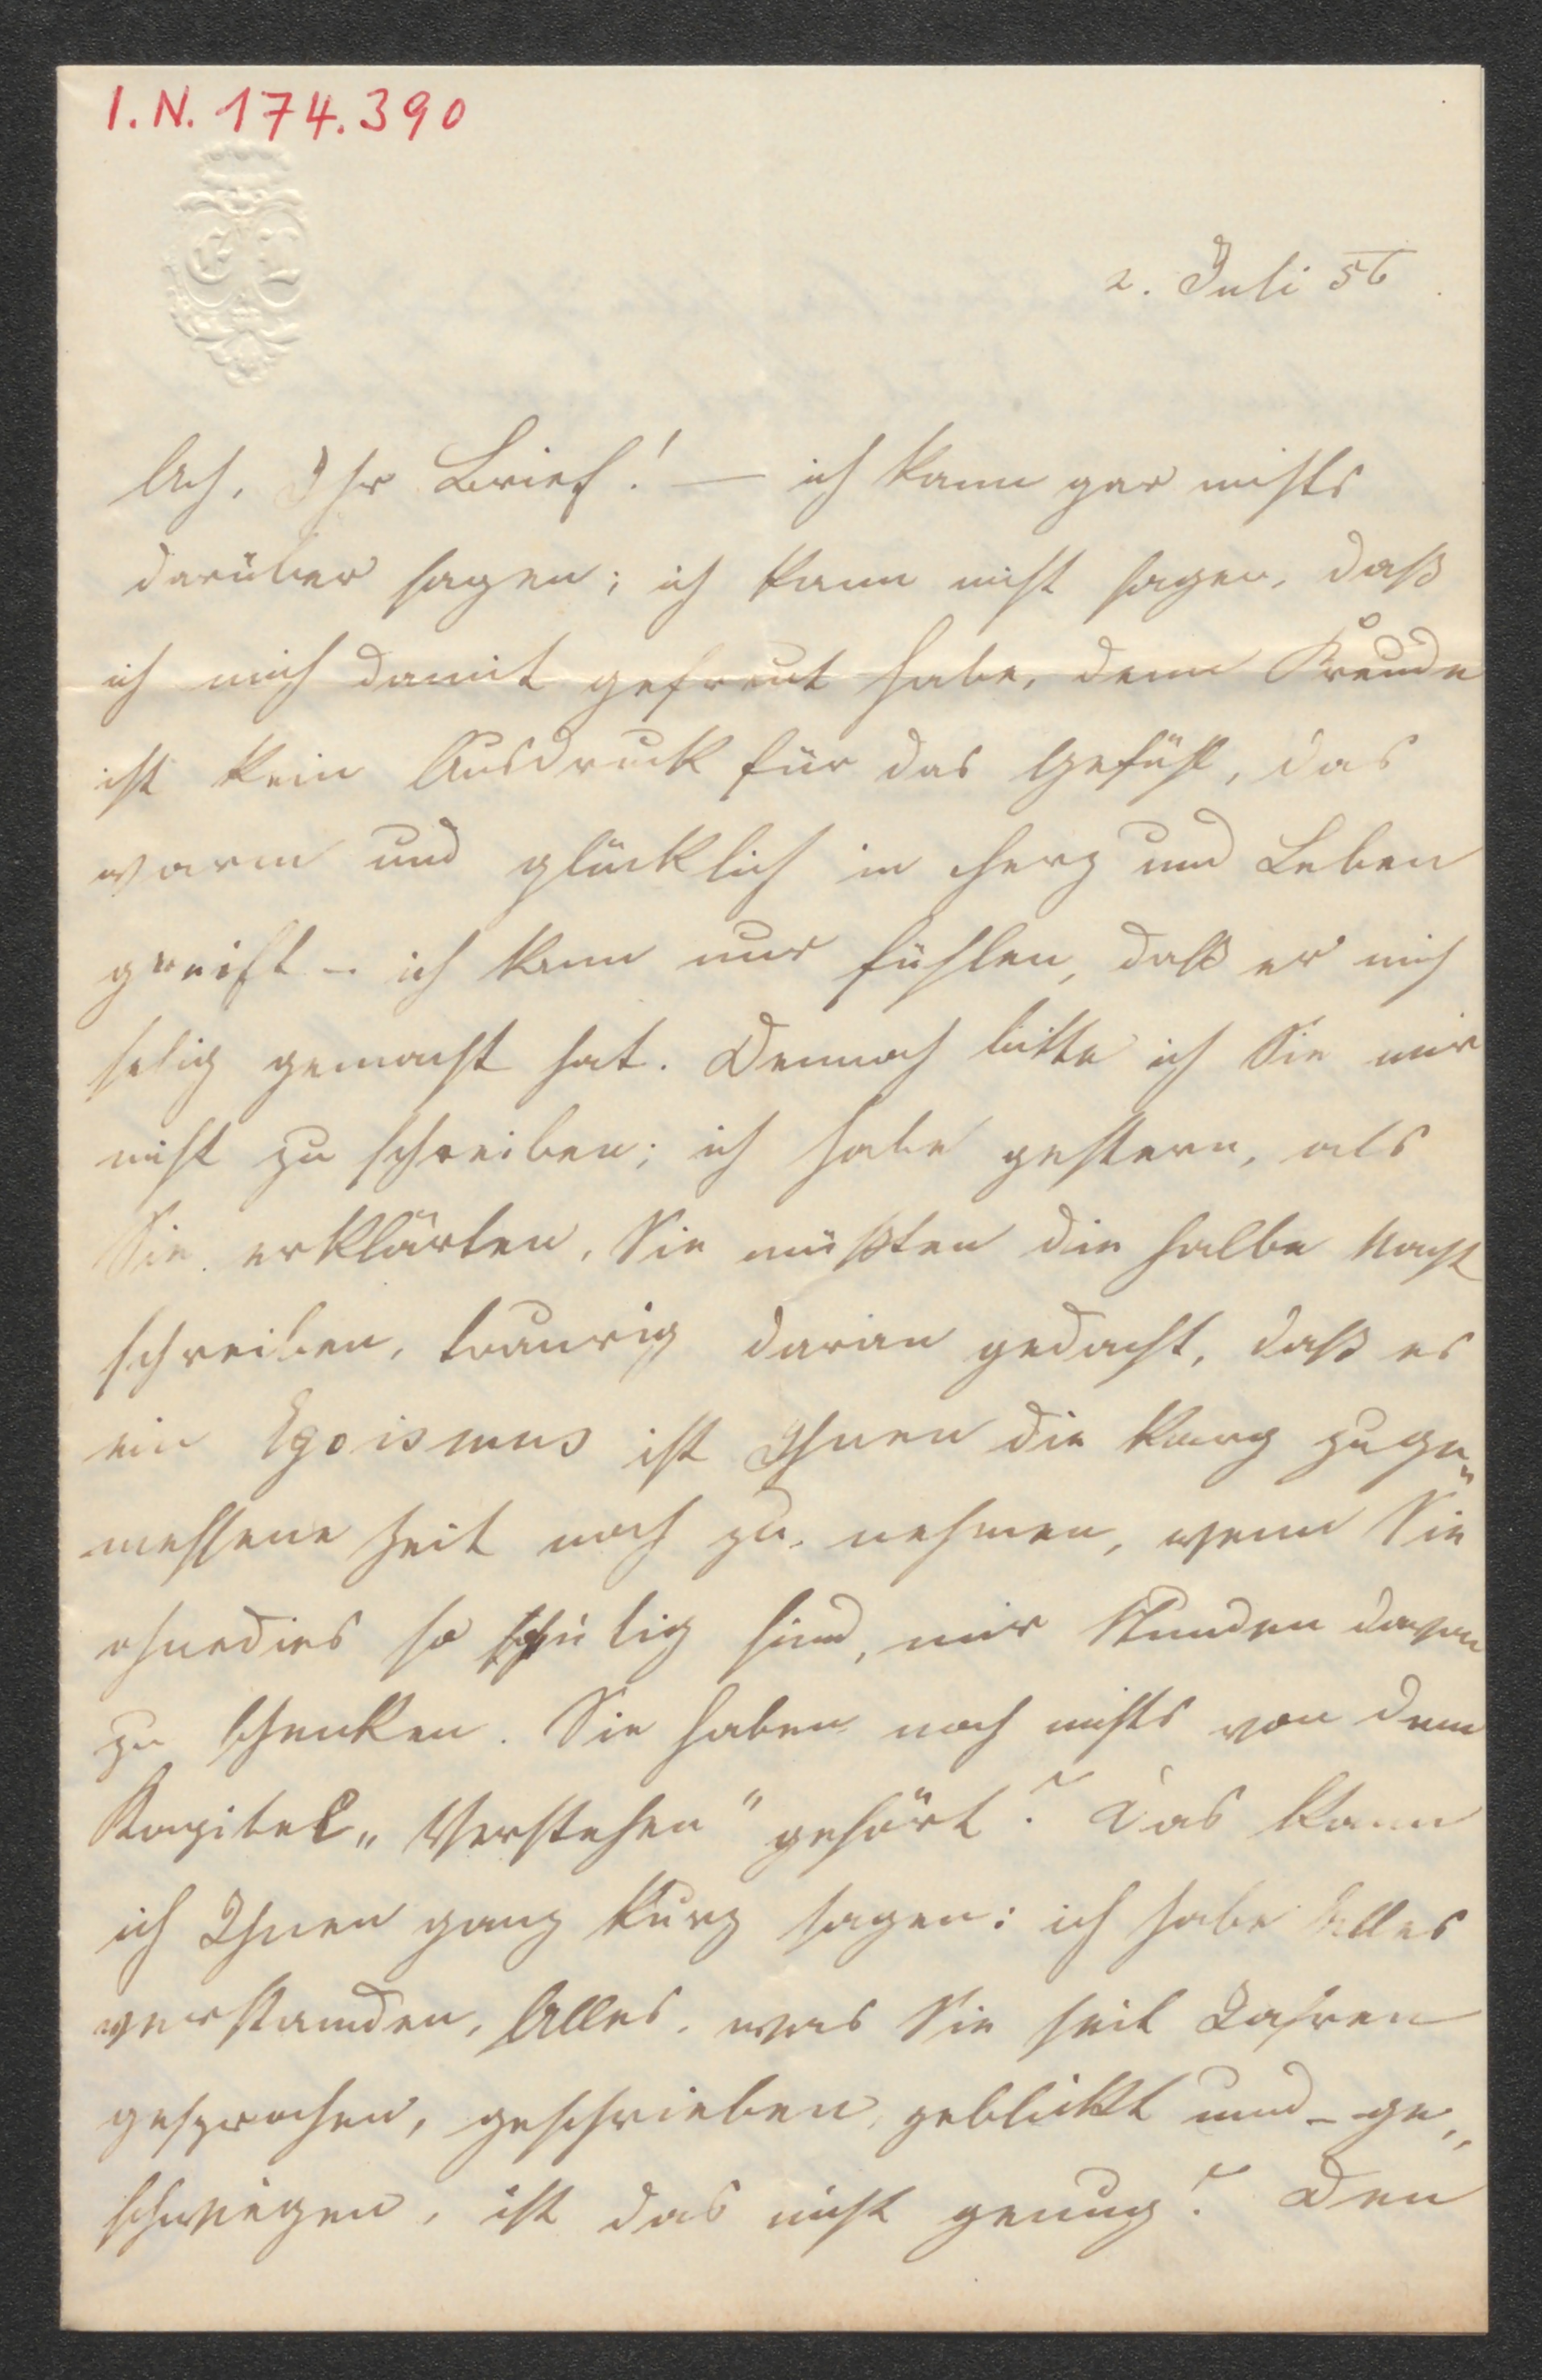 I.N. 174.390
2. Juli 56
Ach, Ihr Brief! — ich kann gar nichts
darüber sagen; ich kann nicht sagen, daß
ich mich damit gefreut habe, denn Freude
ist kein Ausdruck für das Gefühl, das
warm und glücklich in Herz und Leben
greift – ich kann nur fühlen, daß er mich
selig gemacht hat. Dennoch bitte ich Sie mir
nicht zu schreiben; ich habe gestern, als
Sie erklärten, Sie müßten die halbe Nacht
schreiben, traurig daran gedacht, daß es
ein Egoismus ist Ihnen die karg zuge„
messene Zeit noch zu nehmen, wenn Sie
ohnedies so gütig sind, mir Stunden davon
zu schenken. Sie haben noch nichts von dem
Kapitel „Verstehen" gehört? Das kann
ich Ihnen ganz kurz sagen: ich habe Alles
verstanden, Alles, was Sie seit Jahren
gesprochen, geschrieben, geblickt und – ge„
schwiegen, ist das nicht genug? Den